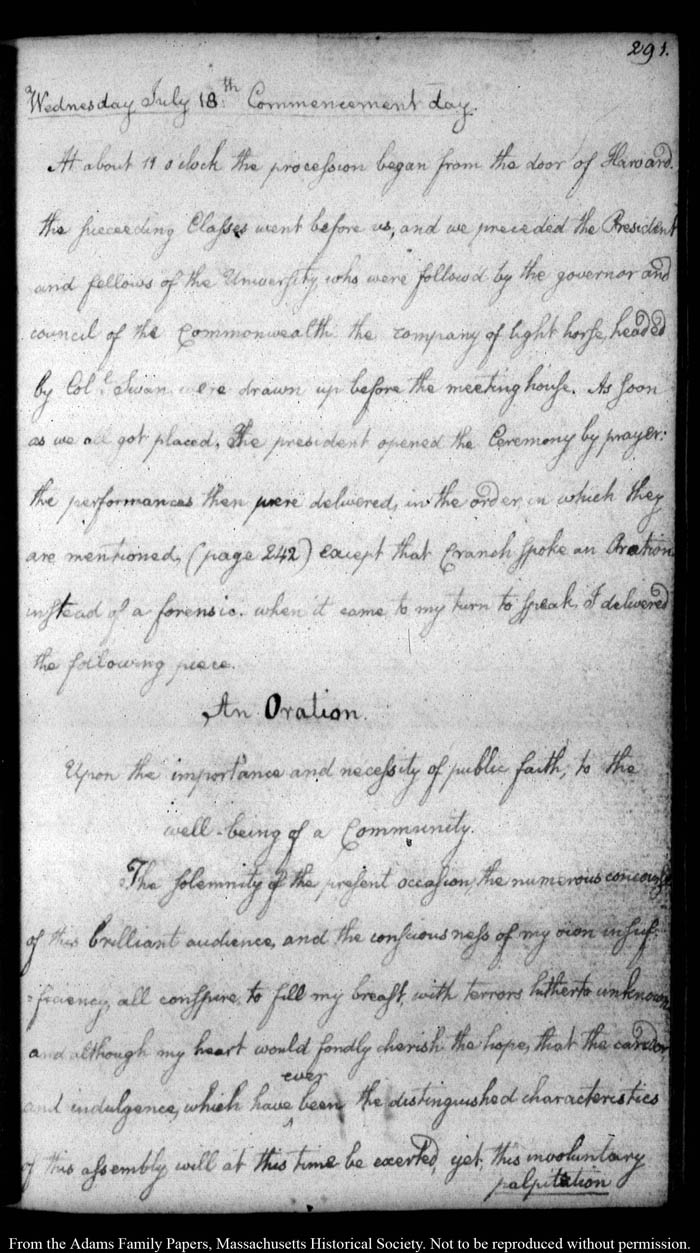 291.
Wednesday July 18th. Commencement day.
At about 11 o clock the procession began from the door of Harvard.
the succeeding Classes went before us, and we preceded the President
and fellows of the University who were followd by the governor and
council of the Commonwealth. the company of light horse, headed
by Coll. Swan were drawn up before the meeting house. As soon
as we all got placed, The president opened the Ceremony by prayer:
the performances then were delivered, in the order in which they
are mentioned, (page 242) except that Cranch spoke an Oration
instead of a forensic. when it came to my turn to speak, I delivered
the following piece.
An Oration.
Upon the importance and necessity of public faith, to the
well-being of a Community.
The solemnity of the present occasion, the numerous concourse
of this brilliant audience, and the consciousness of my own insuf-
=ficiency, all conspire to fill my breast, with terrors hitherto unknown,
and although my heart would fondly cherish the hope, that the candor,
ever
and indulgence, which have ^ been the distinguished characteristics
of this assembly will at this time be exerted, yet, this involuntary
palpitation
From the Adams Family Papers, Massachusetts Historical Society. Not to be reproduced without permission